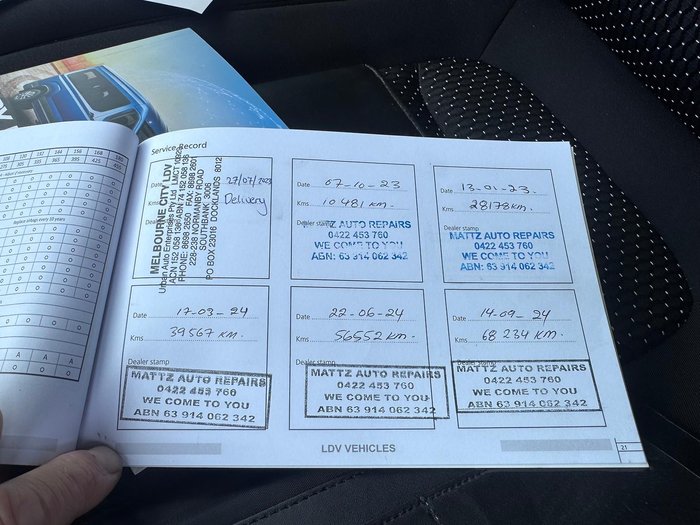 108 120 132 144 156 168 180
275 305 335 365 395 425 455
Replace linings every 10 years
Service Record
Date 27/07/2023
Kms Delivery
Dealer stamp
MELBOURNE CITY LDV
Urban Auto Enterprises Pty Ltd LMCT 10229
ACN 152 058 136/ ABN 74 152 058 136
PHONE: 8698 2850 FAX: 8698 2801
228-238 NORMANBY ROAD
SOUTHBANK 3006
PO BOX 23016 DOCKLANDS 8012
Date 07-10-23
Kms 10 481 km.
Dealer stamp
MATTZ AUTO REPAIRS
0422 453 760
WE COME TO YOU
ABN: 63 914 062 342
Date 13-01-23.
Kms 28178km.
Dealer stamp
MATTZ AUTO REPAIRS
0422 453 760
WE COME TO YOU
ABN: 63 914 062 342
Date 17-03-24
Kms 39567 km.
Dealer stamp
MATTZ AUTO REPAIRS
0422 453 760
WE COME TO YOU
ABN 63 914 062 342
Date 22-06-24
Kms 56552 km.
Dealer stamp
MATTZ AUTO REPAIRS
0422 453 760
WE COME TO YOU
ABN 63 914 062 342
Date 14-09-24
Kms 68 234 km.
Dealer stamp
MATTZ AUTO REPAIRS
0422 453 760
WE COME TO YOU
ABN 63 914 062 342
LDV VEHICLES
21